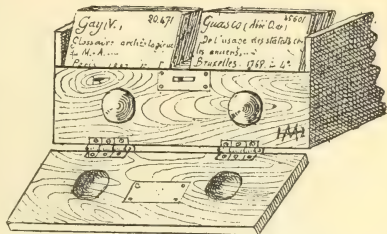 Gay (V.), 20.471
Glossaire archéologique
du M.-A....
Guasco (Abbé O. de) 45601
De l'usage des statues chez
les anciens....
Bruxelles. 1768. in 4º